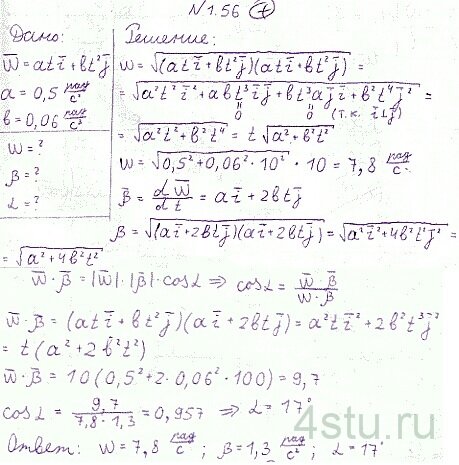 N1.56 (+)
Дано:
w̄ = at ī + bt² j̄
a = 0,5 рад/с²
b = 0,06 рад/с³
w = ?
β = ?
α = ?
Решение:
w = √((at ī + bt² j̄)(at ī + bt² j̄)) =
= √(a²t² ī² + abt³ ī j̄ + bt³a j̄ ī + b²t⁴ j̄²) =
0 0 (т.к. ī⊥j̄)
= √(a²t² + b²t⁴) = t √(a² + b²t²)
w = √(0,5² + 0,06²·10²) · 10 = 7,8 рад/с
β̄ = dw̄/dt = a ī + 2bt j̄
β = √((a ī + 2bt j̄)(a ī + 2bt j̄)) = √(a² ī² + 4b²t² j̄²) =
= √(a² + 4b²t²)
w̄ · β̄ = |w̄| · |β̄| · cos α ⇒ cos α = w̄·β̄ / w·β
w̄ · β̄ = (at ī + bt² j̄)(a ī + 2bt j̄) = a²t ī² + 2b²t³ j̄²
= t(a² + 2b²t²)
w̄ · β̄ = 10(0,5² + 2·0,06²·100) = 9,7
cos α = 9,7 / 7,8·1,3 = 0,957 ⇒ α = 17°
4stu.ru
Ответ: w = 7,8 рад/с; β = 1,3 рад/с²; α = 17°